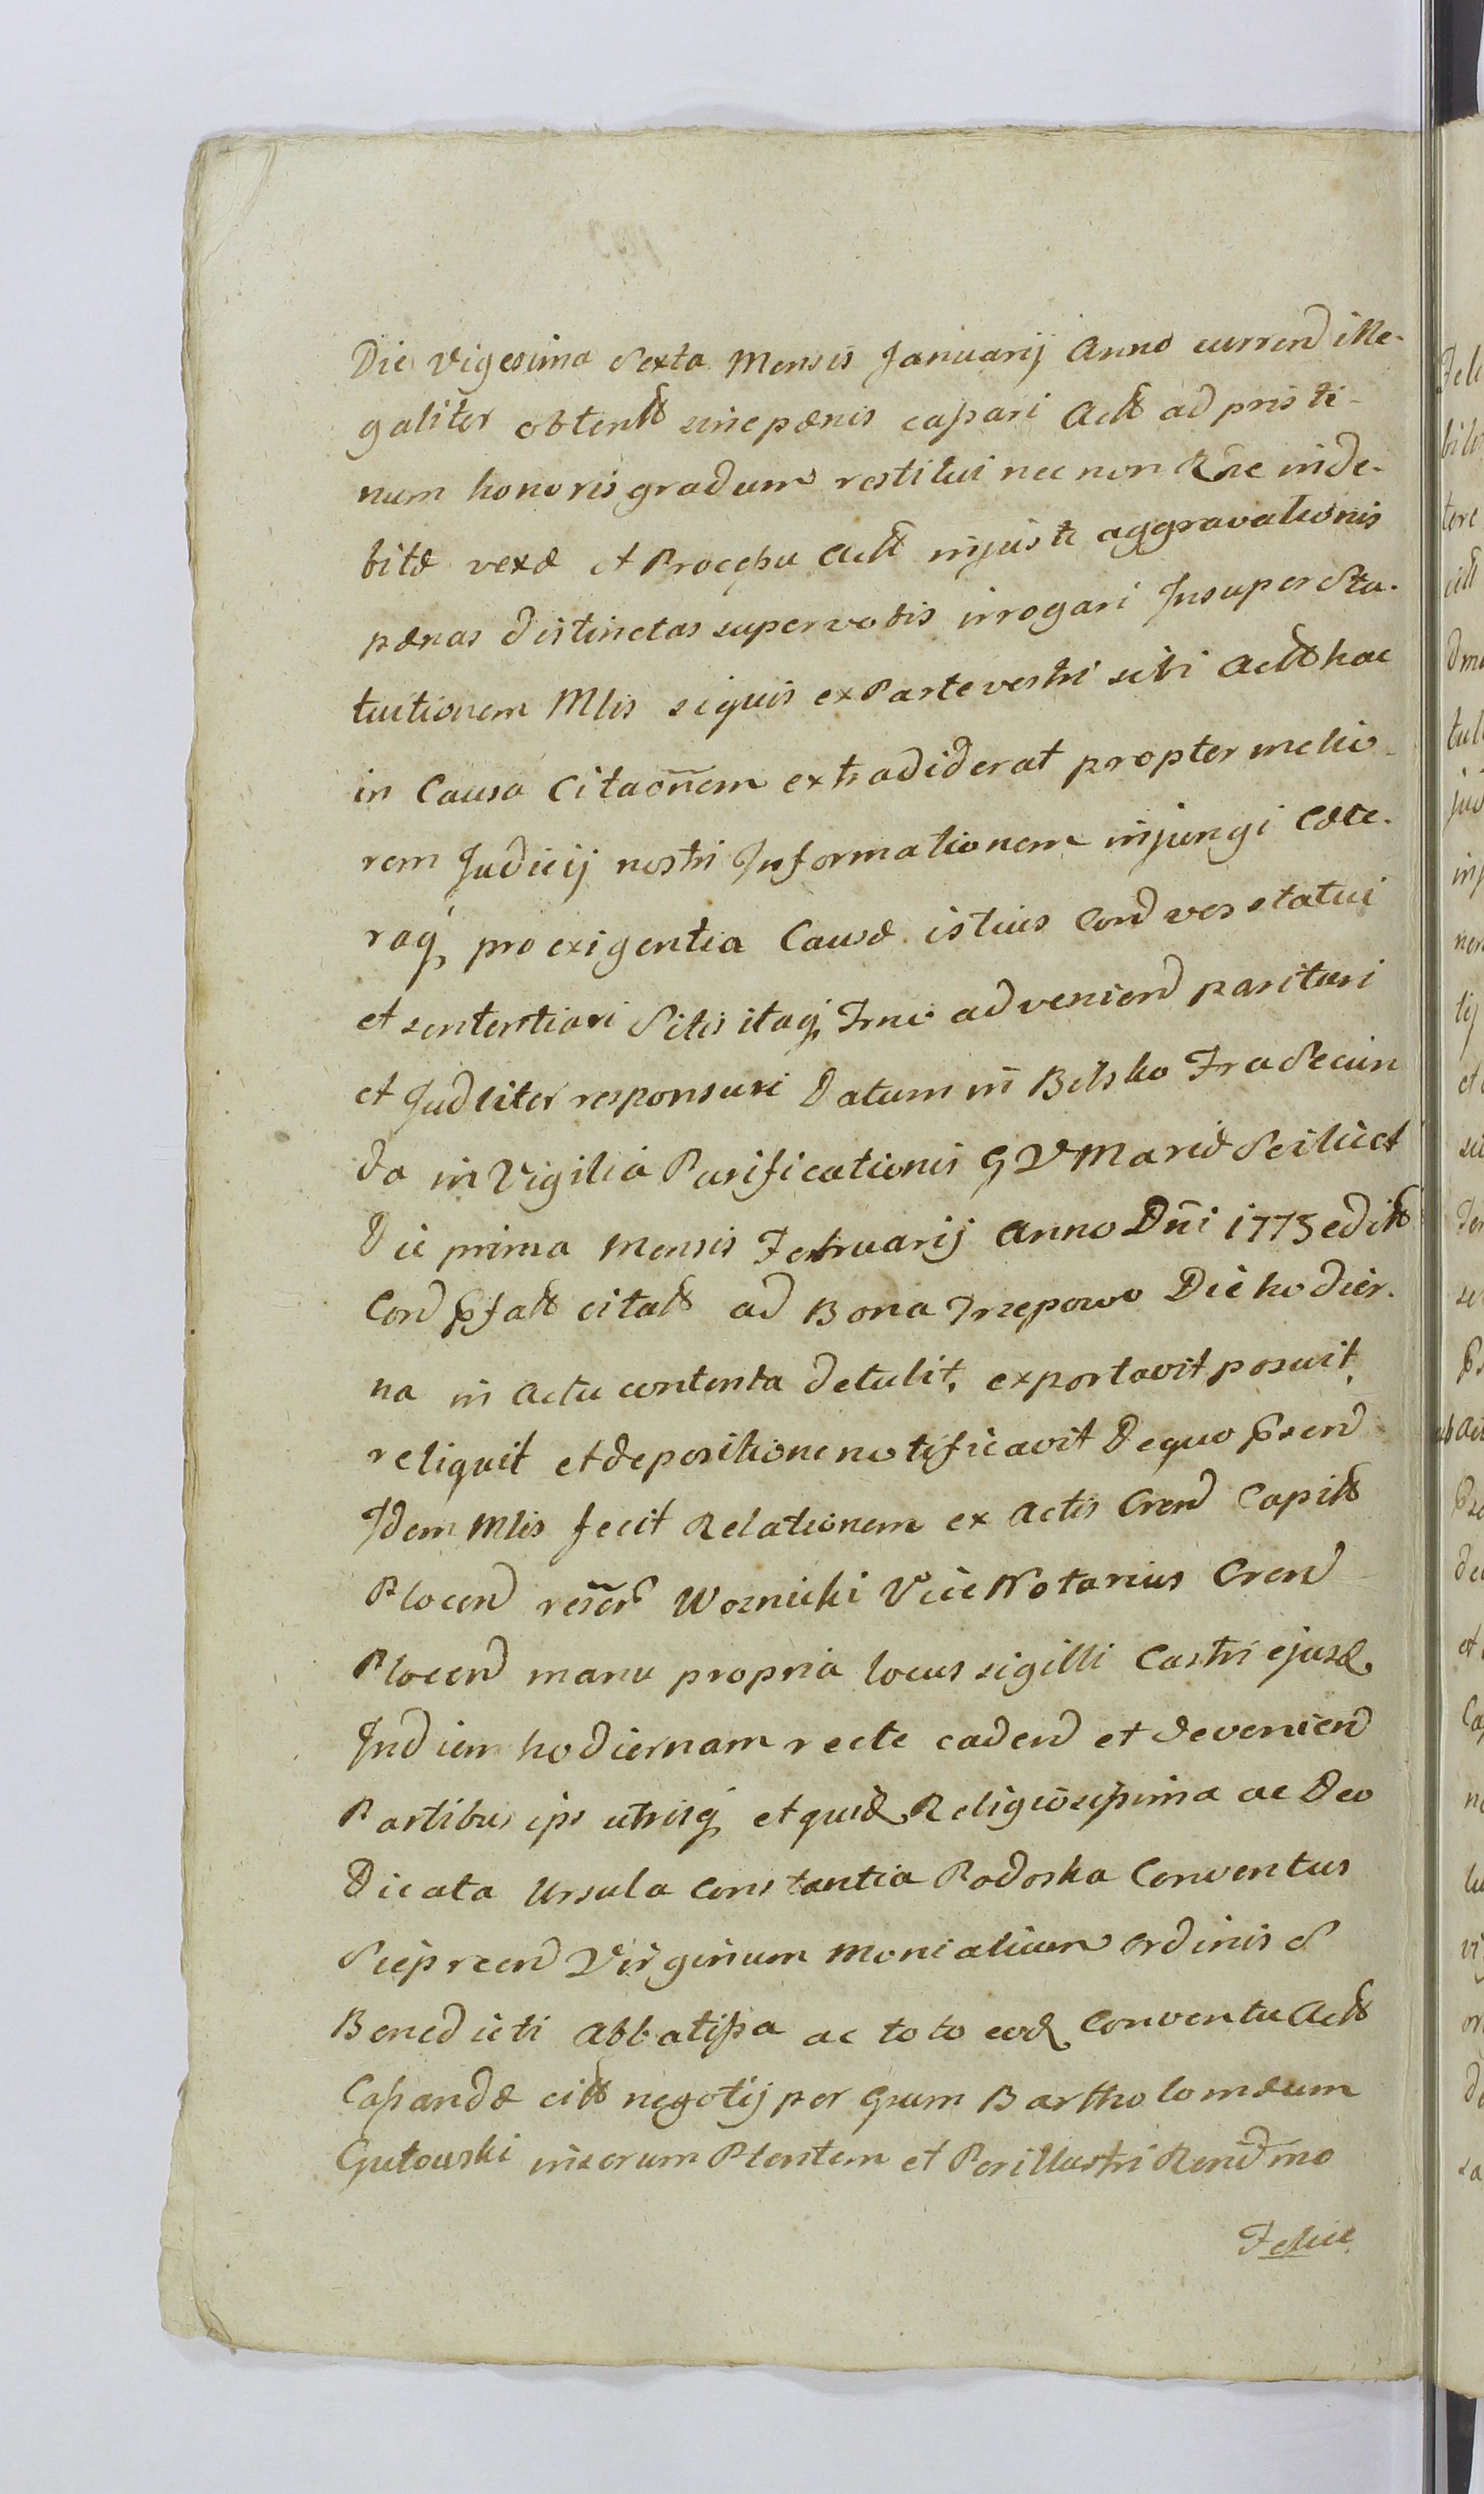 Die Vigesima Sexta Mensis Januarij Anno currend ille-
galiter obtentt sine pænis cassari Actt ad pristi-
num honoris gradum restitui nec non Rñe inde-
bitæ vexæ et Processu Actt injuste aggravationis
pænas distinctas super vobis irrogari Insuper Sta-
tuitionem Mlis siquis ex Parte vestri sibi Actt hac
in Causa Citaõnem extradiderat propter melio-
rem Judicij nostri Informationem injungi Cæte-
raq pro exigentia Causæ istius Cond vos statui
et sententiari Sitis itaq Tmi advenien parituri
et Judliter responsuri Datum in Bilsko Fra Secun
da in Vigilia Purificationis G V Mariæ Scilicet
Die prima Mensis Februarij Anno Dñi 1775 editt
Cond citatt ad Bona Trzepowo Die hodier-
na in Actu contenta detulit, exportavit posuit,
reliquit et depositione notificavit De quo Pssend
Idem Mlis fecit Relationem ex Actis Crend Capitt
Plocend Woznicki Vice Notarius Crend
Plocend manu propria locus sigilli Castri ejusd
In diem hodiernam recte cadend et devenien
Partibus ips utrisq et quid Religiosissima ac Deo
Dicata Ursula Constantia Radoska Conventus
Sieprcend Virginum Monialium Ordinis S
Benedicti Abbatissa ac toto eod Conventu Actt
Cassandæ citt negotij per Gsum Bartholomæum
Gutowski miserum Plentem et Perillustri Rendmo
Felice